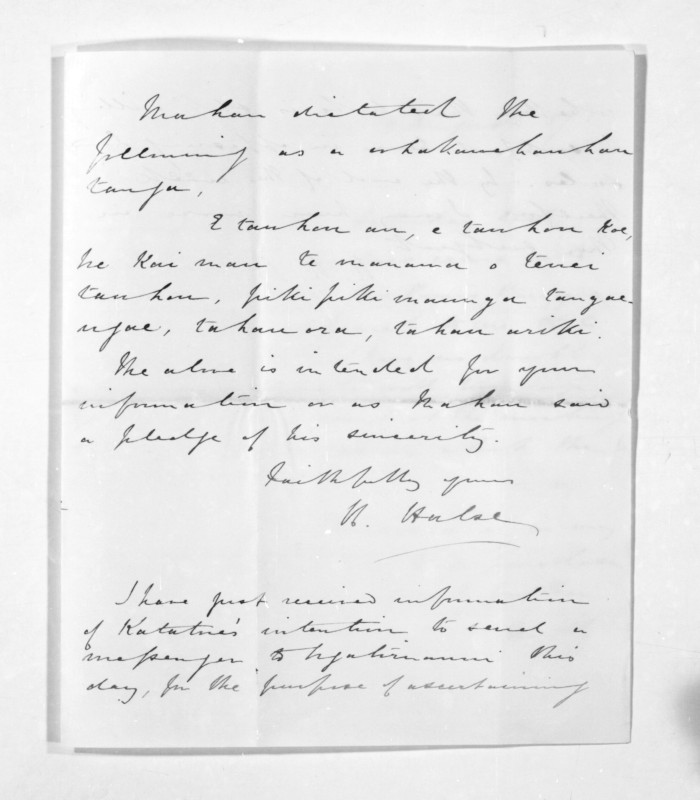 Mahau dictated the
following as a whakawhauhau
tanga,
E tauhou au, e tauhou koe,
he kai mau te manawa o tenei
tauhou, piki piki maunga tangae-
ngae, tahau ora, tahau ariki.
The above is intended for your
information or as Mahau said
a pledge of his sincerity.
Faithfully yours
H. Halse
I have just received information
of Katatore's intention to send a
messenger to Ngatiruanui this
day, for the purpose of ascertaining